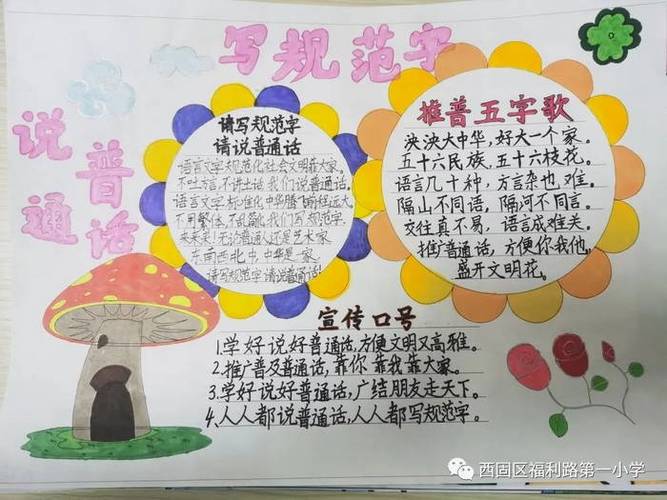 写规范字
说普通话
请写规范字
请说普通话
语言文字规范化社会文明靠大家。
不吐方言,不讲土话我们说普通话。
语言文字标准化中华腾飞前程远大。
不用繁体,不乱简化我们写规范字.
未来来!无论普通人还是艺术家
东南西北中,中华是一家,
请写规范字请说普通话!
推普五字歌
泱泱大中华,好大一个家。
五十六民族,五十六枝花。
语言几十种,方言杂也难。
隔山不同语,隔河不同言。
交往真不易,语言成难关。
推广普通话,方便你我他。
盛开文明花。
宣传口号
1.学好说好普通话,方便文明又高雅。
2.推广普及普通话,靠你靠我靠大家。
3.学好说好普通话,广结朋友走天下。
4.人人都说普通话,人人都写规范字。
西固区福利路第一小学